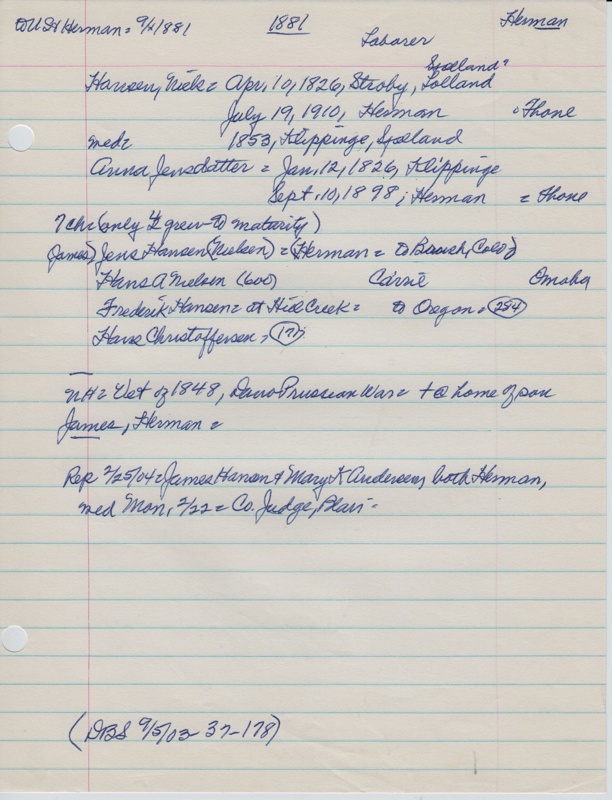 to USA Herman = 9/2/1881 1881 Herman
Laborer
Sjolland?
Hansen, Niels = Apr. 10, 1826, Stroby, Lolland
July 19, 1910, Herman = Thone
med = 1853, Klippinge, Sjolland
Anna Jensdatter = Jan. 12, 1826, Klippinge
Sept. 10, 1898, Herman = Thone
7 ch = (only 4 grew to maturity)
(James) Jens Hansen (Nielsen) = (Herman = to Brush, Colo)
Hans A Nielsen (600) Carrie Omaha
Frederik Hansen = at Hill Creek = to Oregon = 284
Hans Christoffersen = 171
NH = Vet of 1848, Dano Prussian War = + @ home of son
James, Herman =
Rep 2/25/04 = James Hansen & Mary K Andersen, both Herman,
med Mon, 2/22 = Co. Judge, Blair =
(DBS 9/5/03 - 37-178)